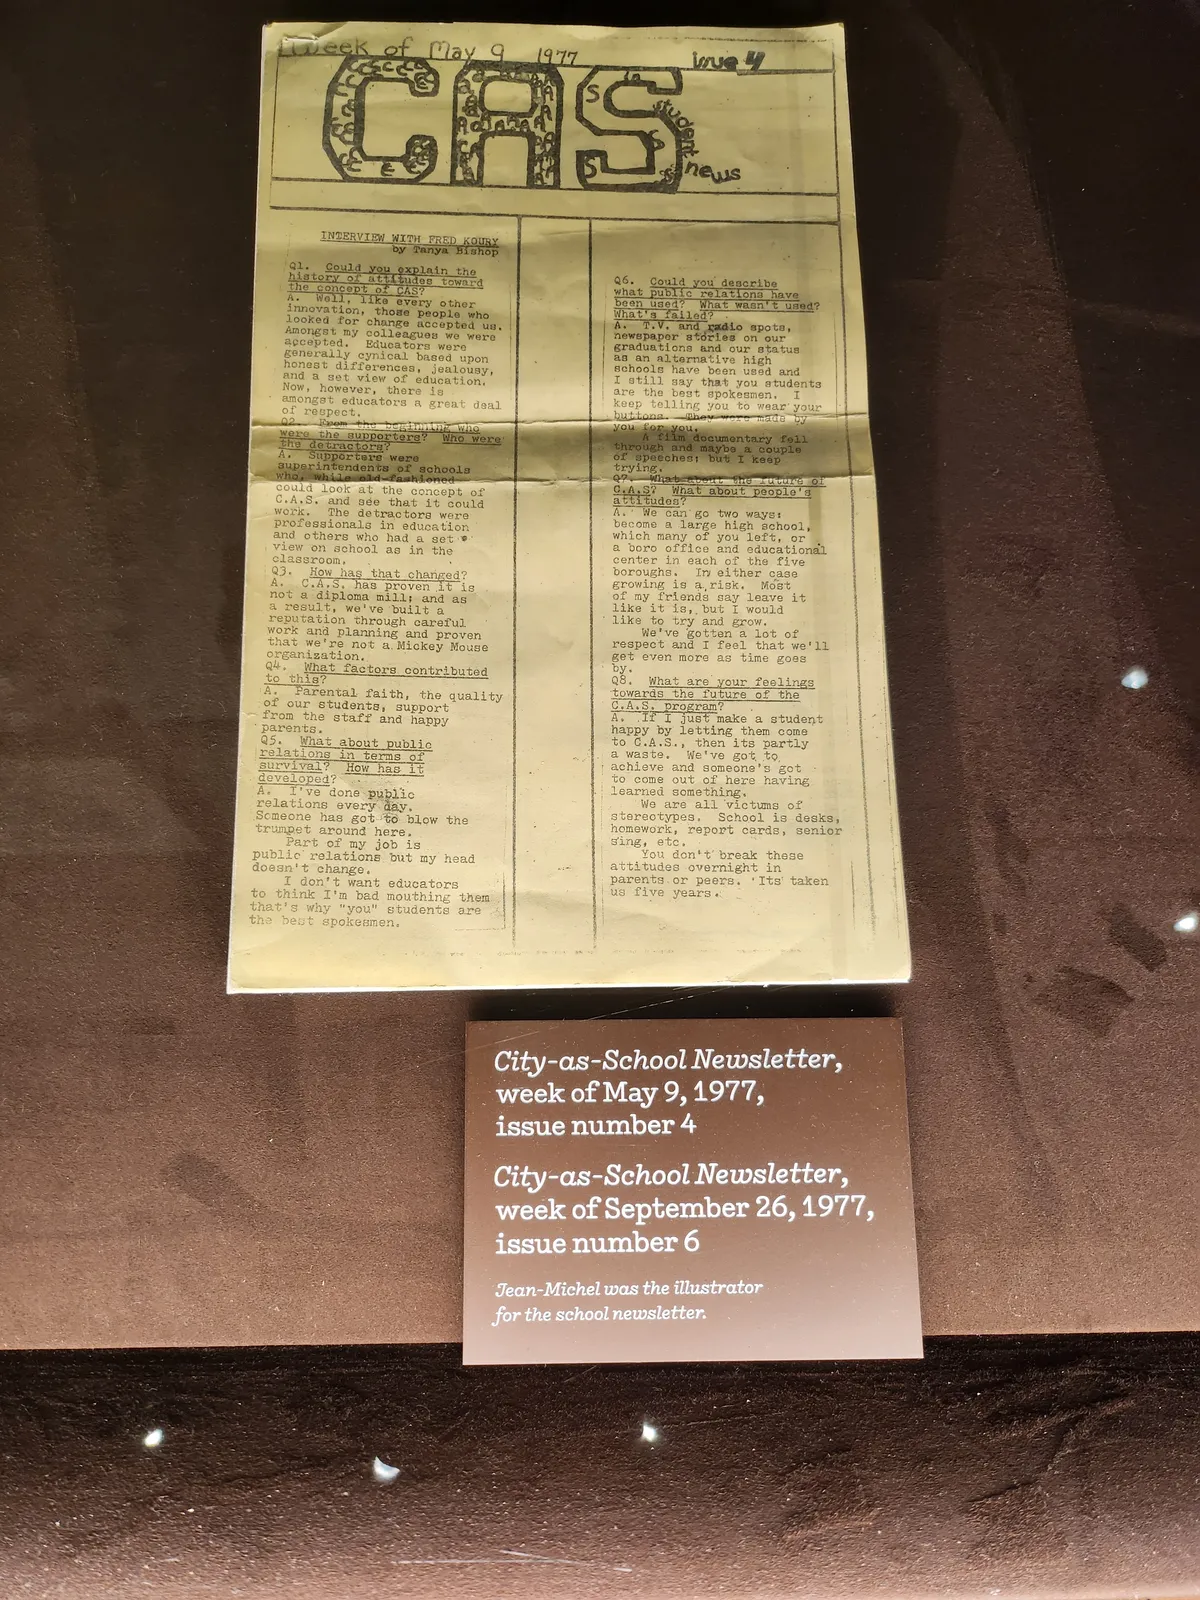 Week of May 9 1977
issue 4
CAS
student news
INTERVIEW WITH FRED KOURY
by Tanya Bishop
Q1. Could you explain the
history of attitudes toward
the concept of CAS?
A. Well, like every other
innovation, those people who
looked for change accepted us.
Amongst my colleagues we were
accepted. Educators were
generally cynical based upon
honest differences, jealousy,
and a set view of education.
Now, however, there is
amongst educators a great deal
of respect.
Q2. From the beginning who
were the supporters? Who were
the detractors?
A. Supporters were
superintendents of schools
who, while old-fashioned
could look at the concept of
C.A.S. and see that it could
work. The detractors were
professionals in education
and others who had a set
view on school as in the
classroom.
Q3. How has that changed?
A. C.A.S. has proven it is
not a diploma mill; and as
a result, we've built a
reputation through careful
work and planning and proven
that we're not a Mickey Mouse
organization.
Q4. What factors contributed
to this?
A. Parental faith, the quality
of our students, support
from the staff and happy
parents.
Q5. What about public
relations in terms of
survival? How has it
developed?
A. I've done public
relations every day.
Someone has got to blow the
trumpet around here.
Part of my job is
public relations but my head
doesn't change.
I don't want educators
to think I'm bad mouthing them
that's why "you" students are
the best spokesmen.
Q6. Could you describe
what public relations have
been used? What wasn't used?
What's failed?
A. T.V. and radio spots,
newspaper stories on our
graduations and our status
as an alternative high
schools have been used and
I still say that you students
are the best spokesmen. I
keep telling you to wear your
buttons. They were made by
you for you.
A film documentary fell
through and maybe a couple
of speeches; but I keep
trying.
Q7. What about the future of
C.A.S? What about people's
attitudes?
A. We can go two ways:
become a large high school,
which many of you left, or
a boro office and educational
center in each of the five
boroughs. In either case
growing is a risk. Most
of my friends say leave it
like it is, but I would
like to try and grow.
We've gotten a lot of
respect and I feel that we'll
get even more as time goes
by.
Q8. What are your feelings
towards the future of the
C.A.S. program?
A. If I just make a student
happy by letting them come
to C.A.S., then its partly
a waste. We've got to
achieve and someone's got
to come out of here having
learned something.
We are all victums of
stereotypes. School is desks,
homework, report cards, senior
sing, etc.
You don't break these
attitudes overnight in
parents or peers. 'Its taken
us five years.
City-as-School Newsletter,
week of May 9, 1977,
issue number 4
City-as-School Newsletter,
week of September 26, 1977,
issue number 6
Jean-Michel was the illustrator
for the school newsletter.